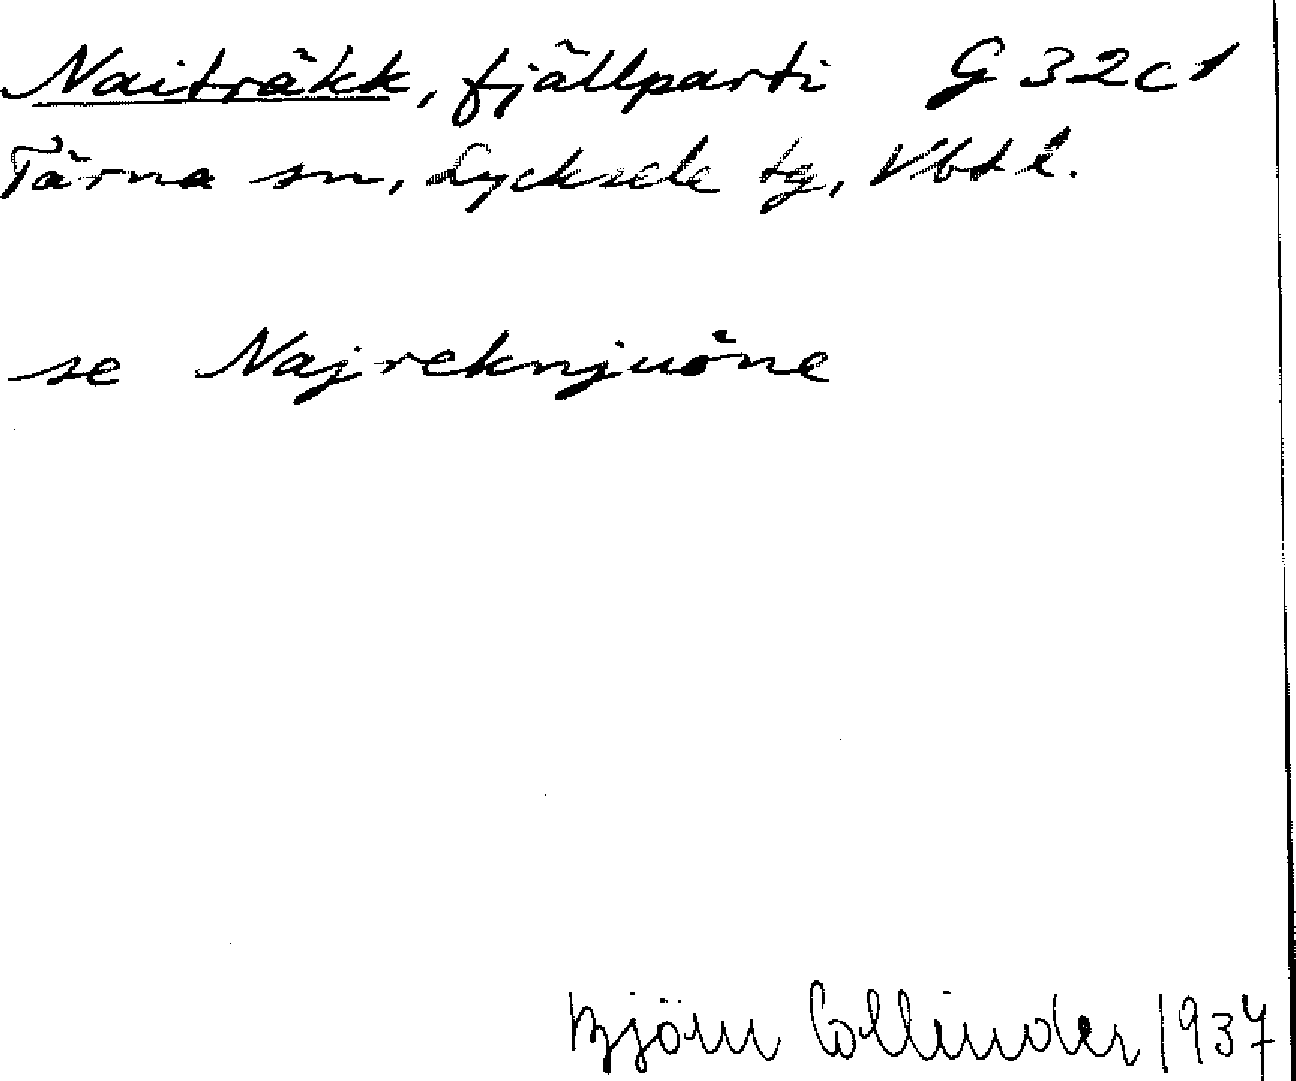 Naiträkk, fjällparti G 32c1
Tärna sn, Lycksele tg, Vbtl.
se Najreknjuöne
Björn Collinder 1937